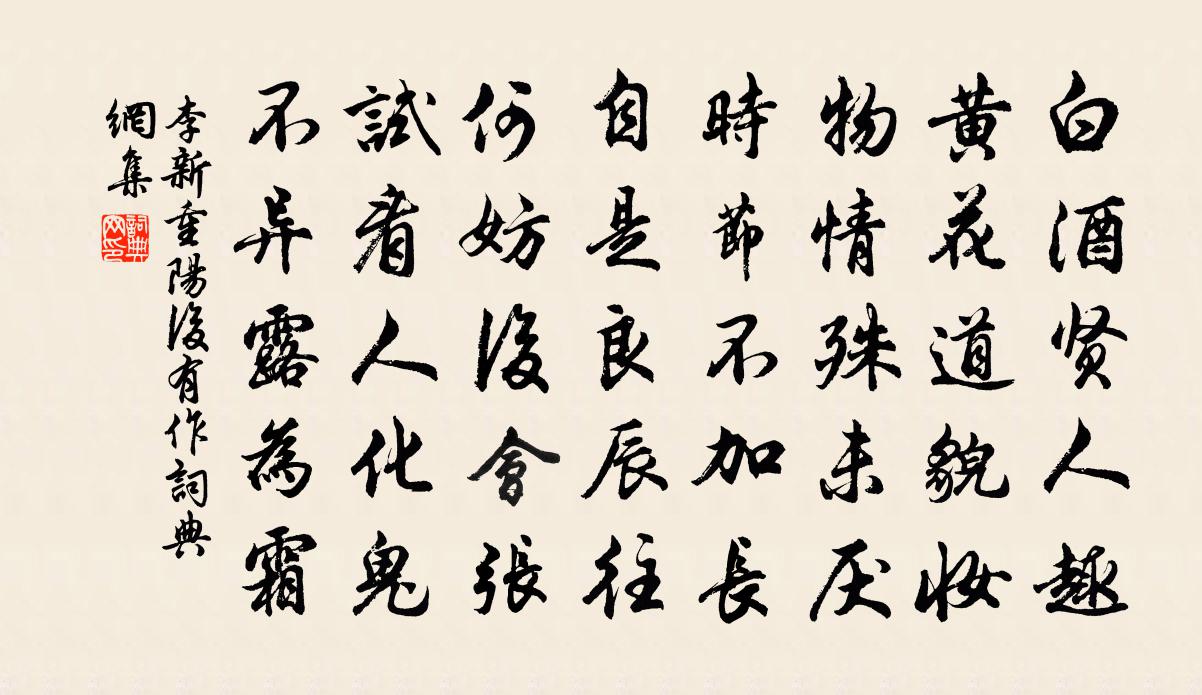 白酒贤人趣
黄花道貌妆
物情殊未厌
時節不加長
自是良辰往
何妨後會張
試看人化鬼
不异露為霜
李新重陽後有作詞典
網集
詞典网印